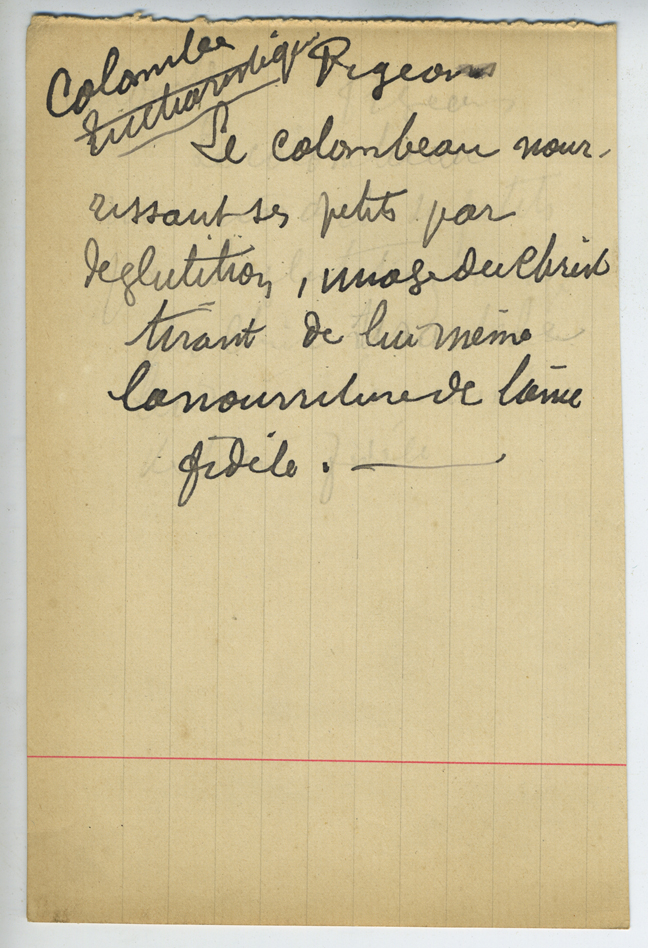 Colombe
Eucharistique
Pigeon
Le colombeau nour-
rissant ses petits par
deglutition, image du Christ
tirant de lui même
la nourriture de l'âme
fidèle. —